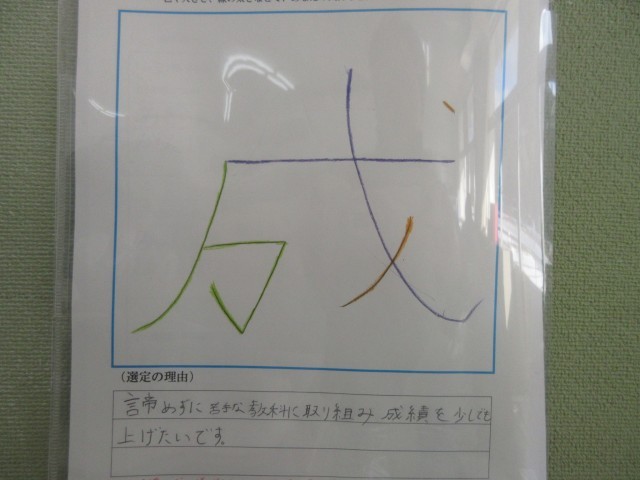 成
(選定の理由)
諦めずに苦手な教科に取り組み成績を少しでも
上げたいです